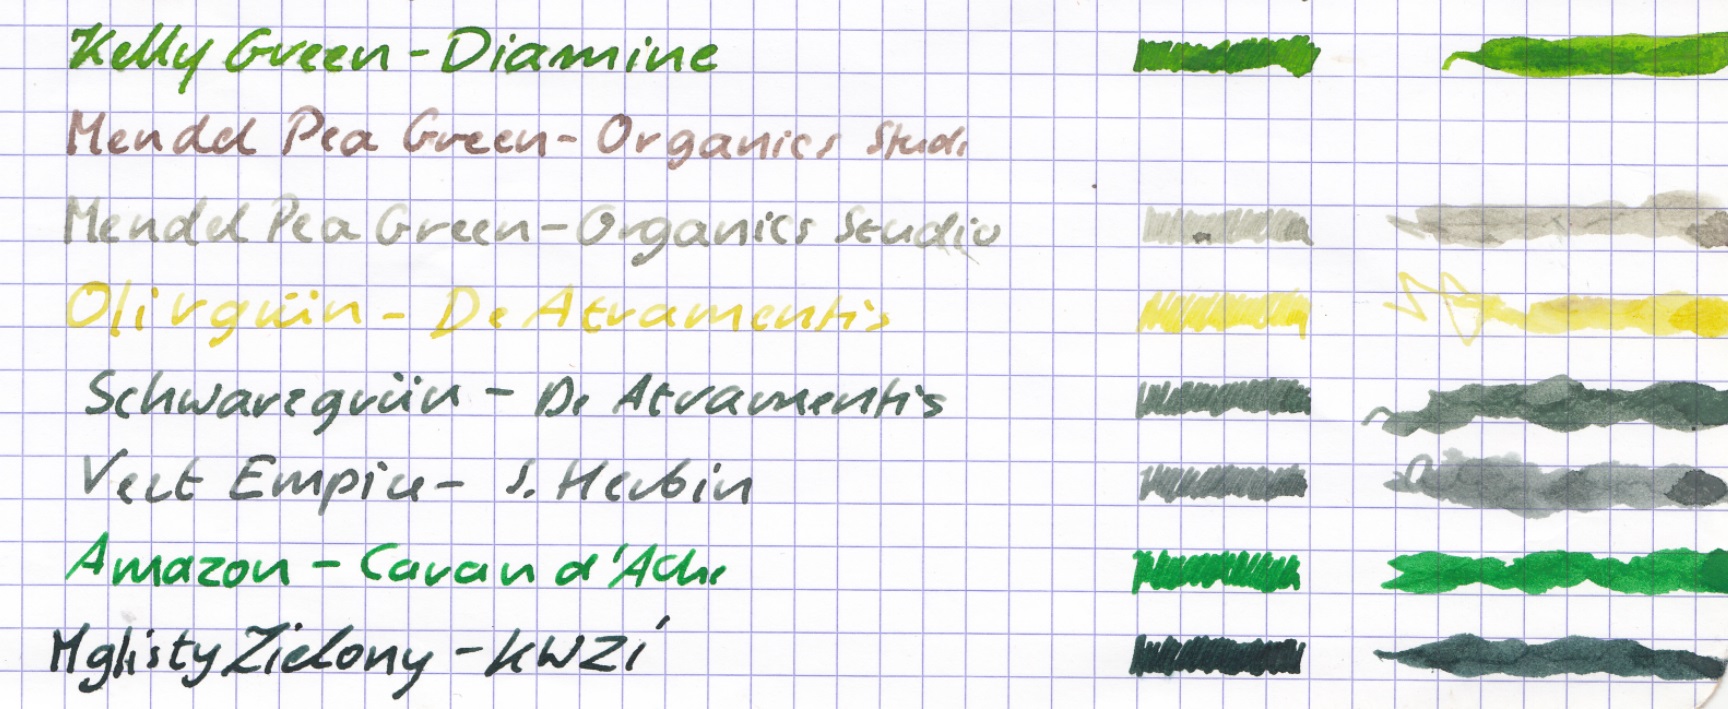 Kelly Green - Diamine
Mendel Pea Green - Organics Studi
Mendel Pea Green - Organics Studio
Olivgrün - De Atramentis
Schwarzgrün - De Atramentis
Vert Empire - J. Herbin
Amazon - Caran d'Ache
Mglisty Zielony - KWZI